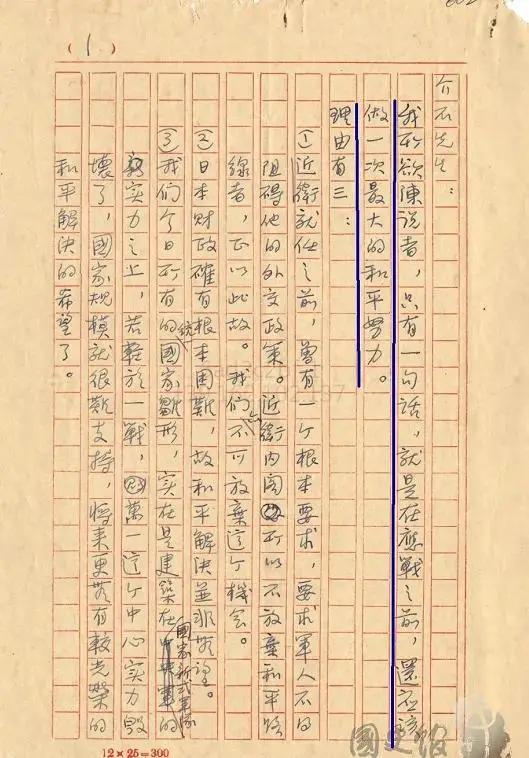 (1)
介石先生：
我所欲陳說者，只有一句話，就是在應戰之前，還應該
做一次最大的和平努力。
理由有三：
①近衛就任之前，曾有一个根本要求，要求軍人不得
阻碍他的外交政策。近衛內阁所以不放棄和平路
線者，正以此故。我们不可放棄這个機会。
②日本财政確有根本困難，故和平解决並非無望。
③我们今日所有的統國家雛形，实在是建築在國家新式軍隊的
实力之上，若輕於一戰，萬一這个中心实力毀
壞了，國家規模就很難支持，將來更無有較光榮的
和平解决的希望了。
12×25=300
國史館